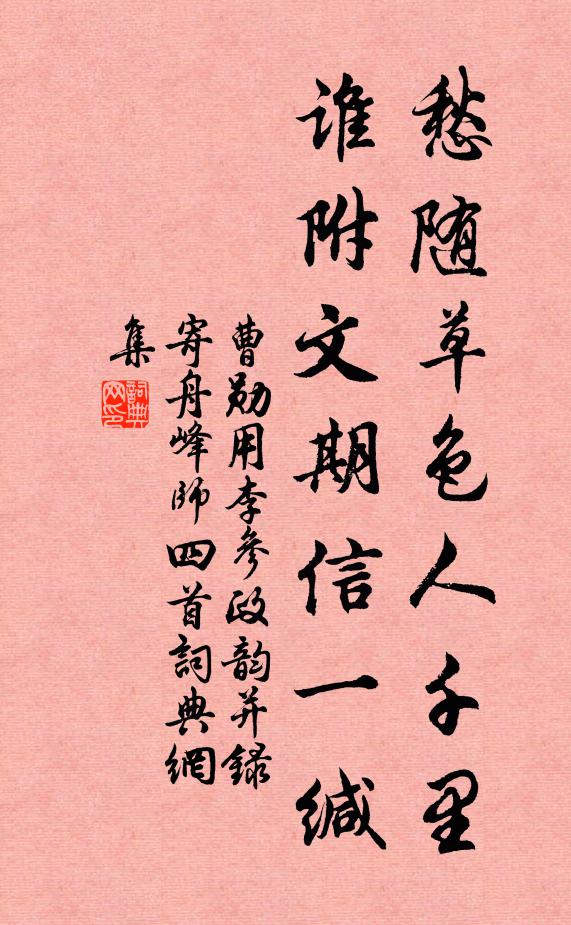 愁随草色人千里
谁附文期信一缄
曹勋用李参政韵并録
寄舟峰师四首詞典網
集
詞典網印